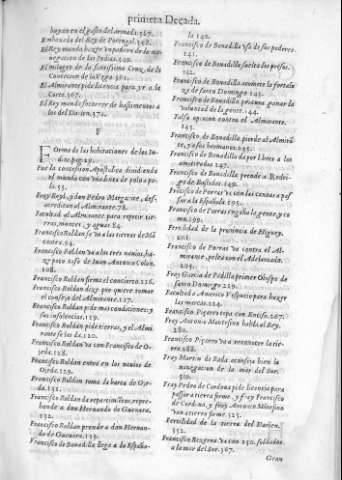 primera Decada.
hayan en el gasto del armada.367.
Embaxada del Rey de Portugal.358.
El Rey manda hazer un padron de la na-
uegacion de las Indias.340.
El milagro de la santissima Cruz, de la
Concecion de la Vega.361.
El Almirante pide licencia para yr a la
Corte.367.
El Rey manda socorrer de bastimentos a
los del Darien.372.
F
Forma de las habitaciones de los In-
dios pag.29.
Fue la concession Apostolica diuidiendo
el mundo con una linea de polo a po-
lo.55.
Fray Boyl, y don Pedro Margarite, des-
acreditan al Almirante.78.
Facultad al Almirante para repartir tie-
rras, montes, y aguas.84.
Francisco Roldan se va a las tierras de Ma
nicatex.94.
Francisco Roldan va a los tres nauios, ha-
ze poco caso de Iuan Antonio Colon.
108.
Francisco Roldan firma el concierto.116.
Francisco Roldan dize que quiere tomar
el consejo del Almirante.117.
Francisco Roldan pide mas condiciones: y
sus insolencias.119.
Francisco Roldan pide tierras, y el Almi
rante se las da.120.
Francisco Roldan va con Francisco de O-
jeda.128.
Francisco Roldan entra en los nauios de
Ojeda.129.
Francisco Roldan toma la barca de Oje-
da.131.
Francisco Roldan da repartimiento, repre-
hende a don Hernando de Gueuara.
132.
Francisco Roldan prende a don Hernan-
do de Gueuara.133.
Francisco de Bouadilla llega a la Española.
la 140.
Francisco de Bouadilla usa de sus poderes.
141.
Francisco de Bouadilla suelta los presos.
142.
Francisco de Bouadilla acomete la fortale
za de santo Domingo.143.
Francisco de Bouadilla procura ganar la
voluntad de la gente.144.
Falsa opinion contra el Almirante.
145.
Francisco de Bouadilla pierde al Almiran
te, y a sus hermanos.
Francisco de Bouadilla da por libres a los
amotinados.147.
Francisco de Bouadilla prende a Rodri-
go de Bastidas.149.
Francisco de Porras va con las canoas a pas
sar a la Española.195.
Francisco de Porras engaña la gente, y ca
mina.199.
Fertilidad de la prouincia de Higuey.
201.
Francisco de Porras va contra el Al-
mirante, pelea con el Adelantado.
205.
Fray Garcia de Padilla primer Obispo de
santo Domingo.219.
Facultad a Americo Vespucio para hazer
las marcas.224.
Francisco Piçarro topa con Enciso.267.
Fray Antonio Montesino habla al Rey.
280.
Francisco Piçarro va a reconocer la tie-
rra.288.
Fray Martin de Rada aconseja bien la
nauegacion de la mar del Sur.
310.
Fray Pedro de Cordoua pide licencia para
passar a tierra firme, y fray Francisco
de Cordoua, y fray Antonio Montesino
van a tierra firme.325.
Fertilidad de la tierra del Darien.
352.
Francisco Bezerra va con 150. soldados
a la mar del Sur.367.
Gran